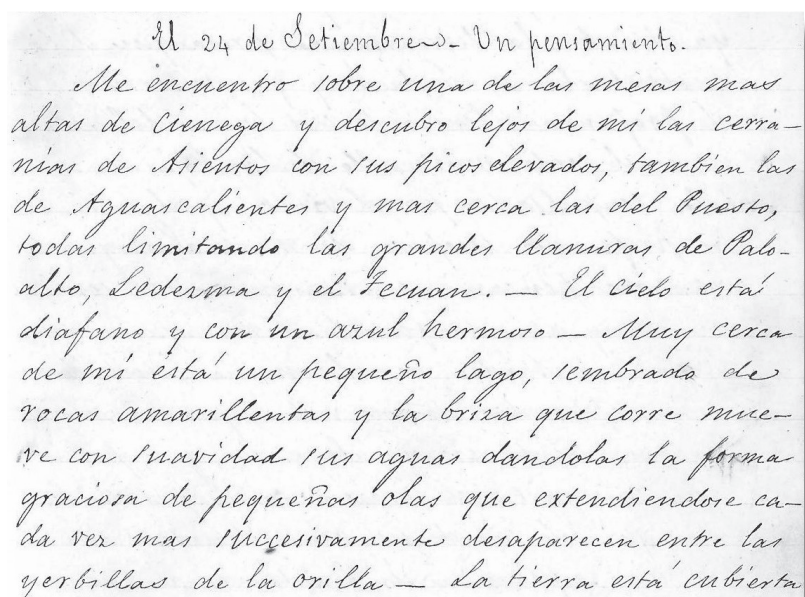 El 24 de Setiembre - Un pensamiento.
Me encuentro sobre una de las mesas mas
altas de Cienega y descubro lejos de mí las cerra-
nias de Asientos con sus picos elevados, tambien las
de Aguascalientes y mas cerca las del Puesto,
todas limitando las grandes llanuras de Palo-
alto, Ledezma y el Tecuan. — El cielo está
diafano y con un azul hermoso — Muy cerca
de mí está un pequeño lago, sembrado de
rocas amarillentas y la briza que corre mue-
ve con suavidad sus aguas dandolas la forma
graciosa de pequeñas olas que extendiendose ca-
da vez mas successivamente desaparecen entre las
yerbillas de la orilla — La tierra está cubierta